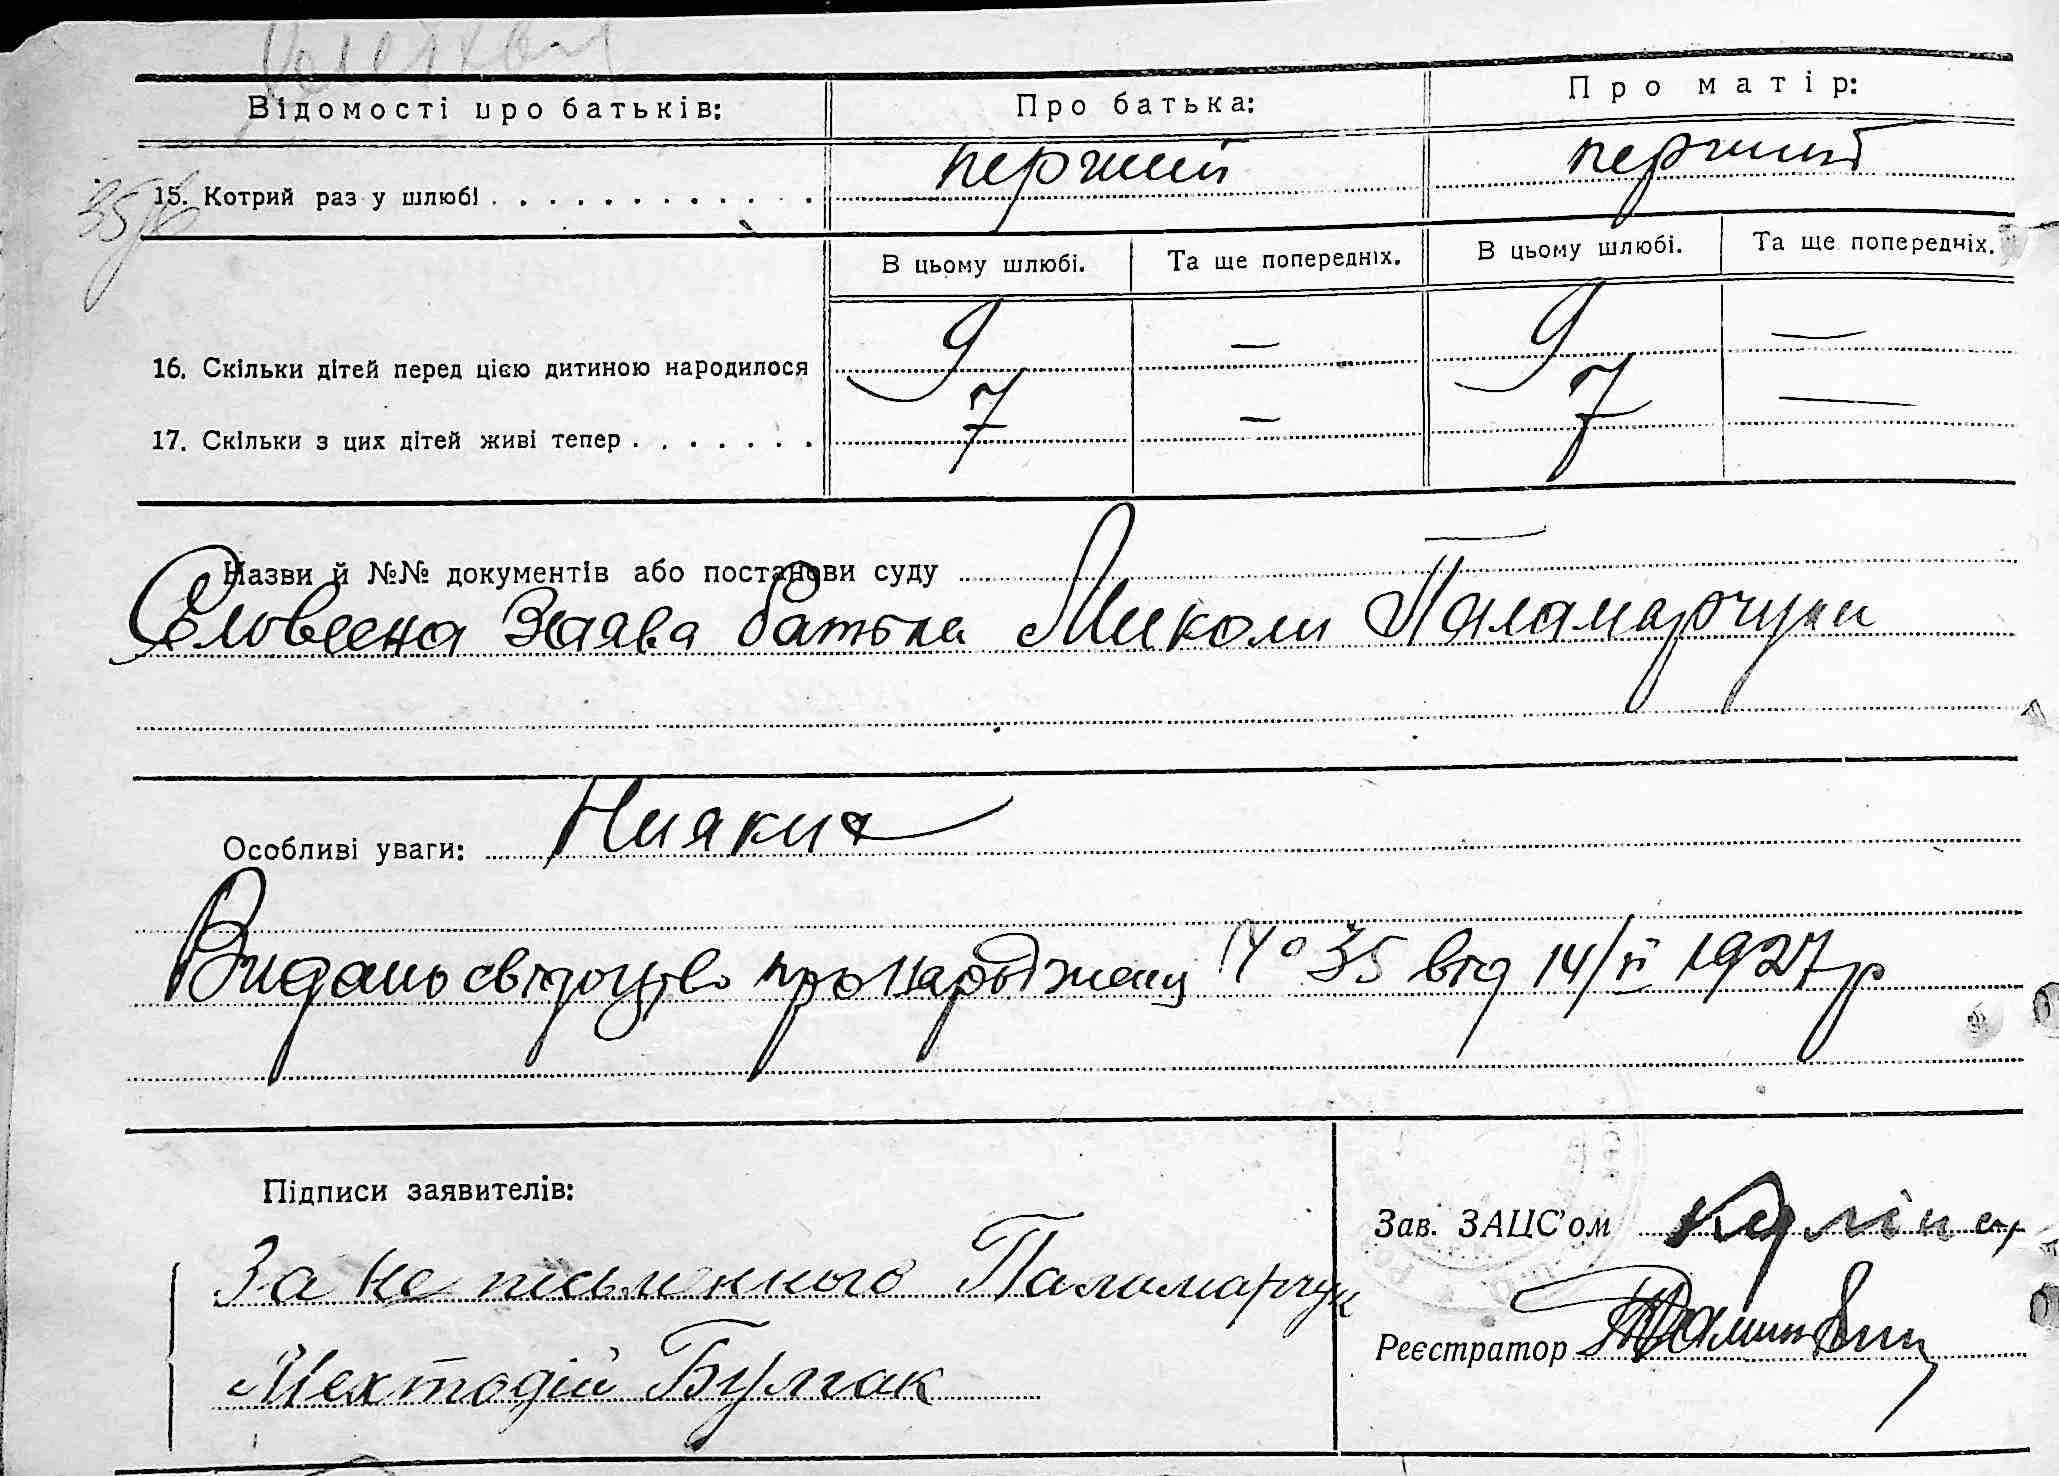 Відомості про батьків: Про батька: Про матір:
15. Котрий раз у шлюбі перший перший
В цьому шлюбі. Та ще попередніх. В цьому шлюбі. Та ще попередніх.
16. Скільки дітей перед цією дитиною народилося 9 — 9 —
17. Скільки з цих дітей живі тепер 7 — 7 —
Назви й №№ документів або постанови суду
Словесна Заява батька Миколи Паламарчука
Особливі уваги: Нияких
Видано свідоцтво про народженц № 35 від 14/VI 1927 р
Підписи заявителів:
За не письменного Паламарчук
Мехтодій Булгак
Зав. ЗАЦС'ом
Реєстратор